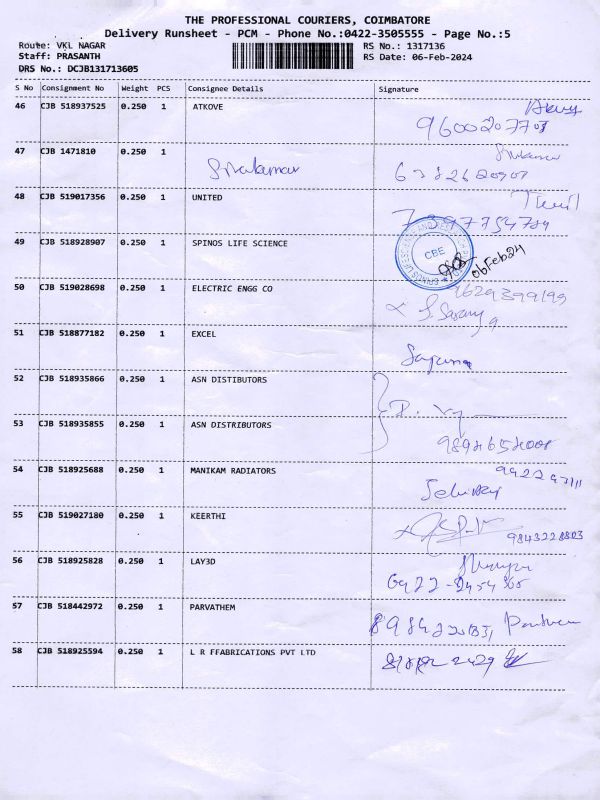 THE PROFESSIONAL COURIERS, COIMBATORE
Delivery Runsheet - PCM - Phone No.:0422-3505555 - Page No.:5
Route: VKL NAGAR
RS No.: 1317136
Staff: PRASANTH
RS Date: 06-Feb-2024
DRS No.: DCJB131713605
S No Consignment No Weight PCS Consignee Details Signature
46 CJB 518937525 0.250 1 ATKOVE
9600207703
47 CJB 1471810 0.250 1
48 CJB 519017356 0.250 1 UNITED
49 CJB 518928907 0.250 1 SPINOS LIFE SCIENCE
CBE
06Feb24
50 CJB 519028698 0.250 1 ELECTRIC ENGG CO
51 CJB 518877182 0.250 1 EXCEL
52 CJB 518935866 0.250 1 ASN DISTIBUTORS
53 CJB 518935855 0.250 1 ASN DISTRIBUTORS
54 CJB 518925688 0.250 1 MANIKAM RADIATORS
55 CJB 519027180 0.250 1 KEERTHI
9843228803
56 CJB 518925828 0.250 1 LAY3D
57 CJB 518442972 0.250 1 PARVATHEM
58 CJB 518925594 0.250 1 L R FFABRICATIONS PVT LTD